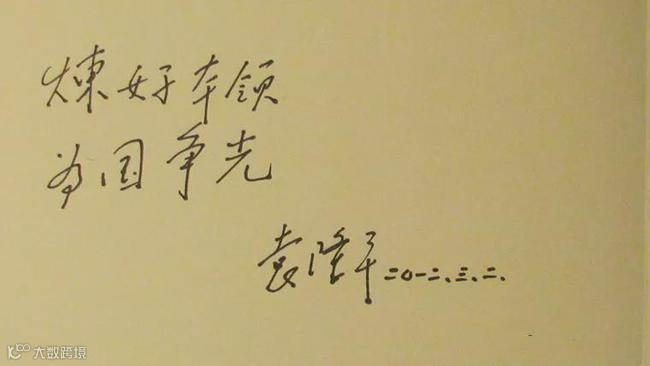 煉好本領
为国争光
袁隆平 二〇一二、三、二、
大数跨境